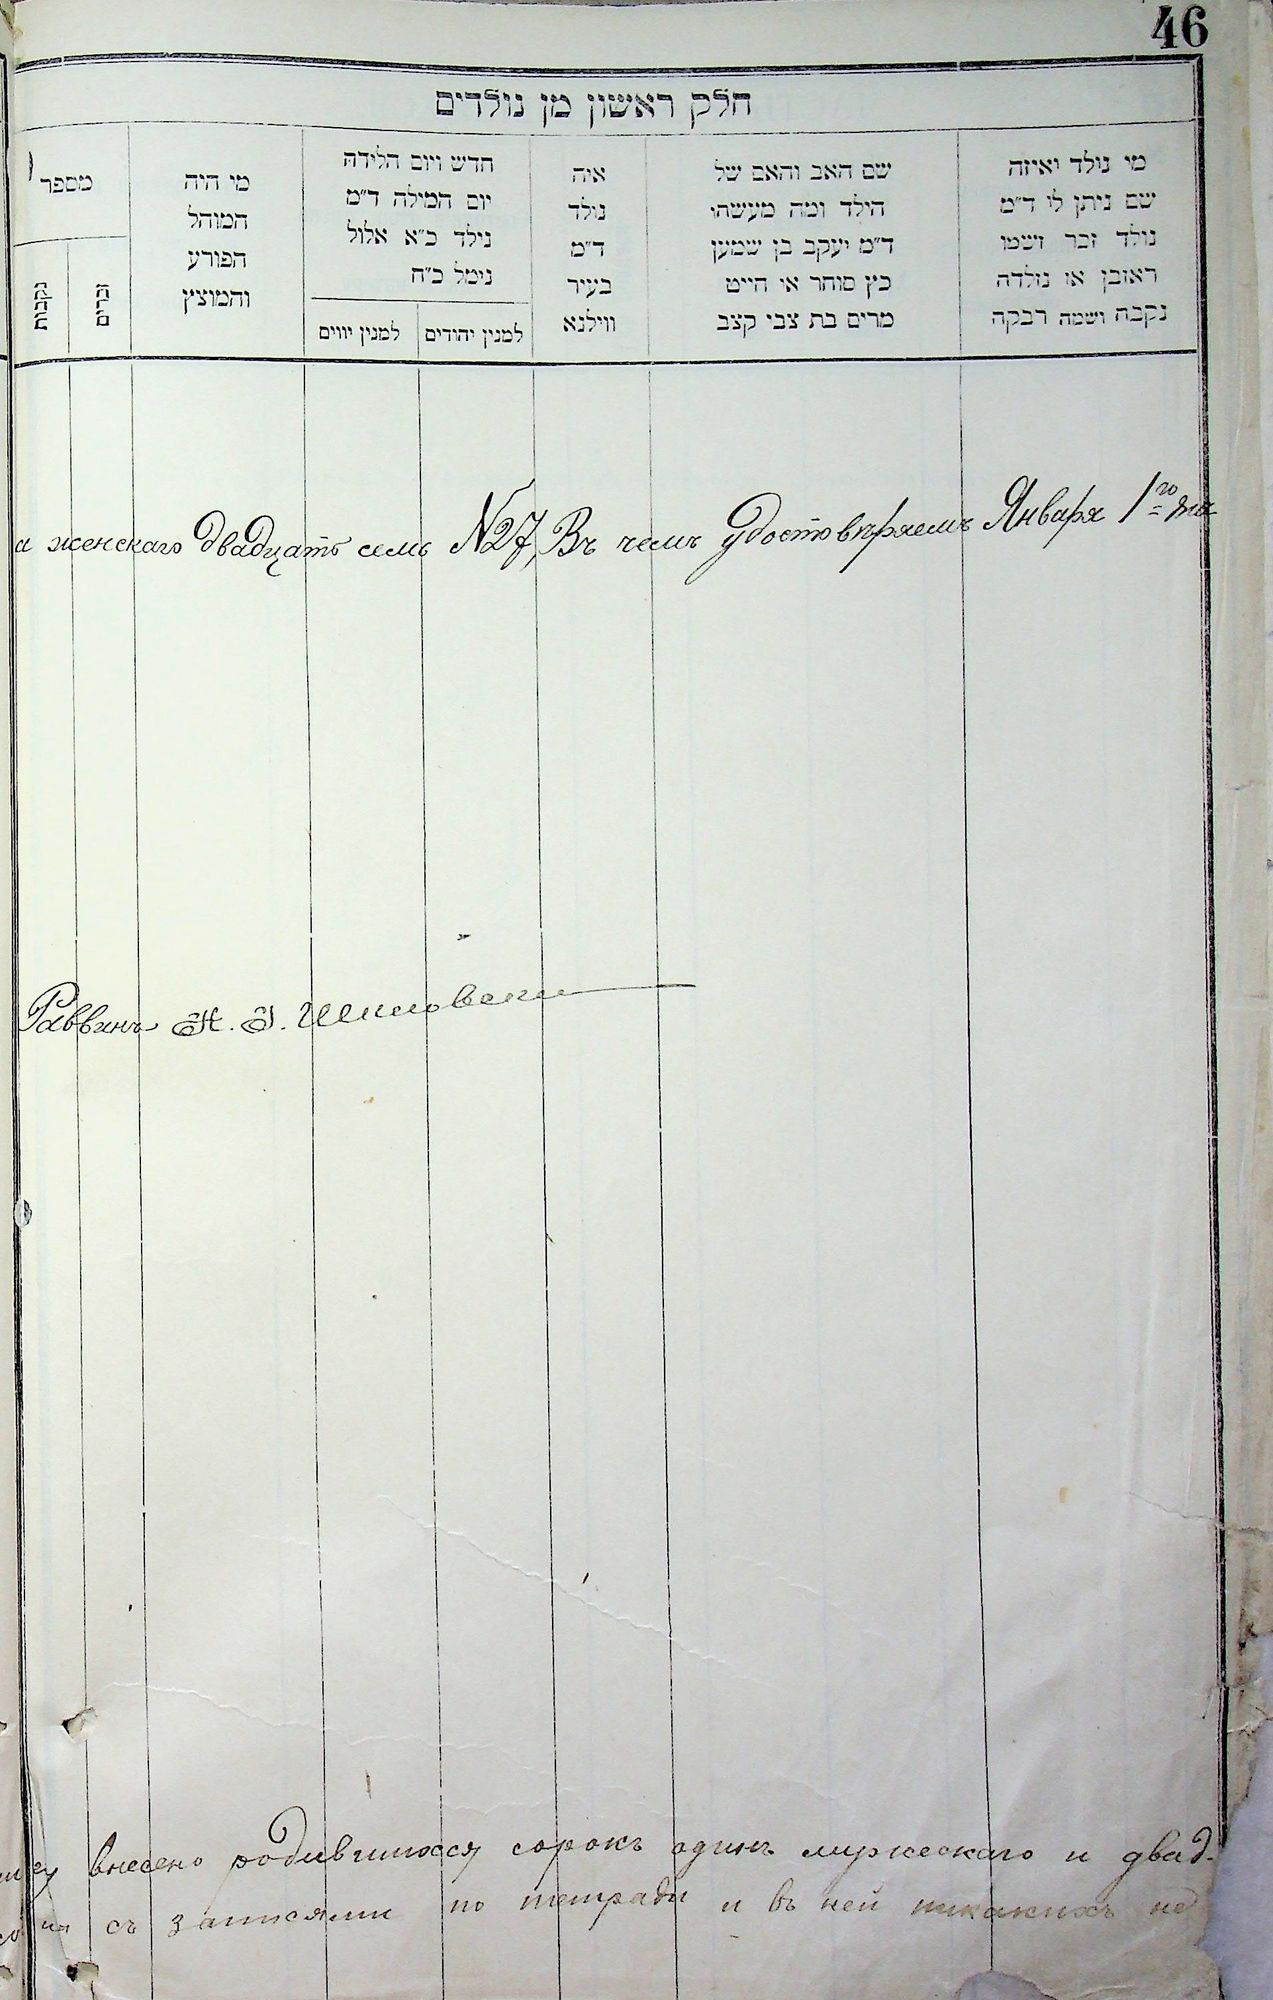 46
חלק ראשון מן נולדים
מי נולד ואיזה
שם ניתן לו ד״מ
נולד זכר ושמו
ראובן או נולדה
נקבה ושמה רבקה
שם האב והאם של
הילד ומה מעשהו
ד״מ יעקב בן שמעון
כץ סוחר או חייט
מרים בת צבי קצב
איה
נולד
ד״מ
בעיר
ווילנא
חדש ויום הלידה
יום המילה ד״מ
נילד כ״א אלול
נימל כ״ח
למנין יהודים
למנין יווים
מי היה
המוהל
הפורע
והמוצץ
מספר
זכרים
נקבות
и женскаго двадцать семь №27, Въ чемъ удостовѣряемъ Января 1го дня
Раввинъ
внесено родившихся сорокъ одинъ мужескаго и двад-
съ записями по тетради и въ ней никакихъ не